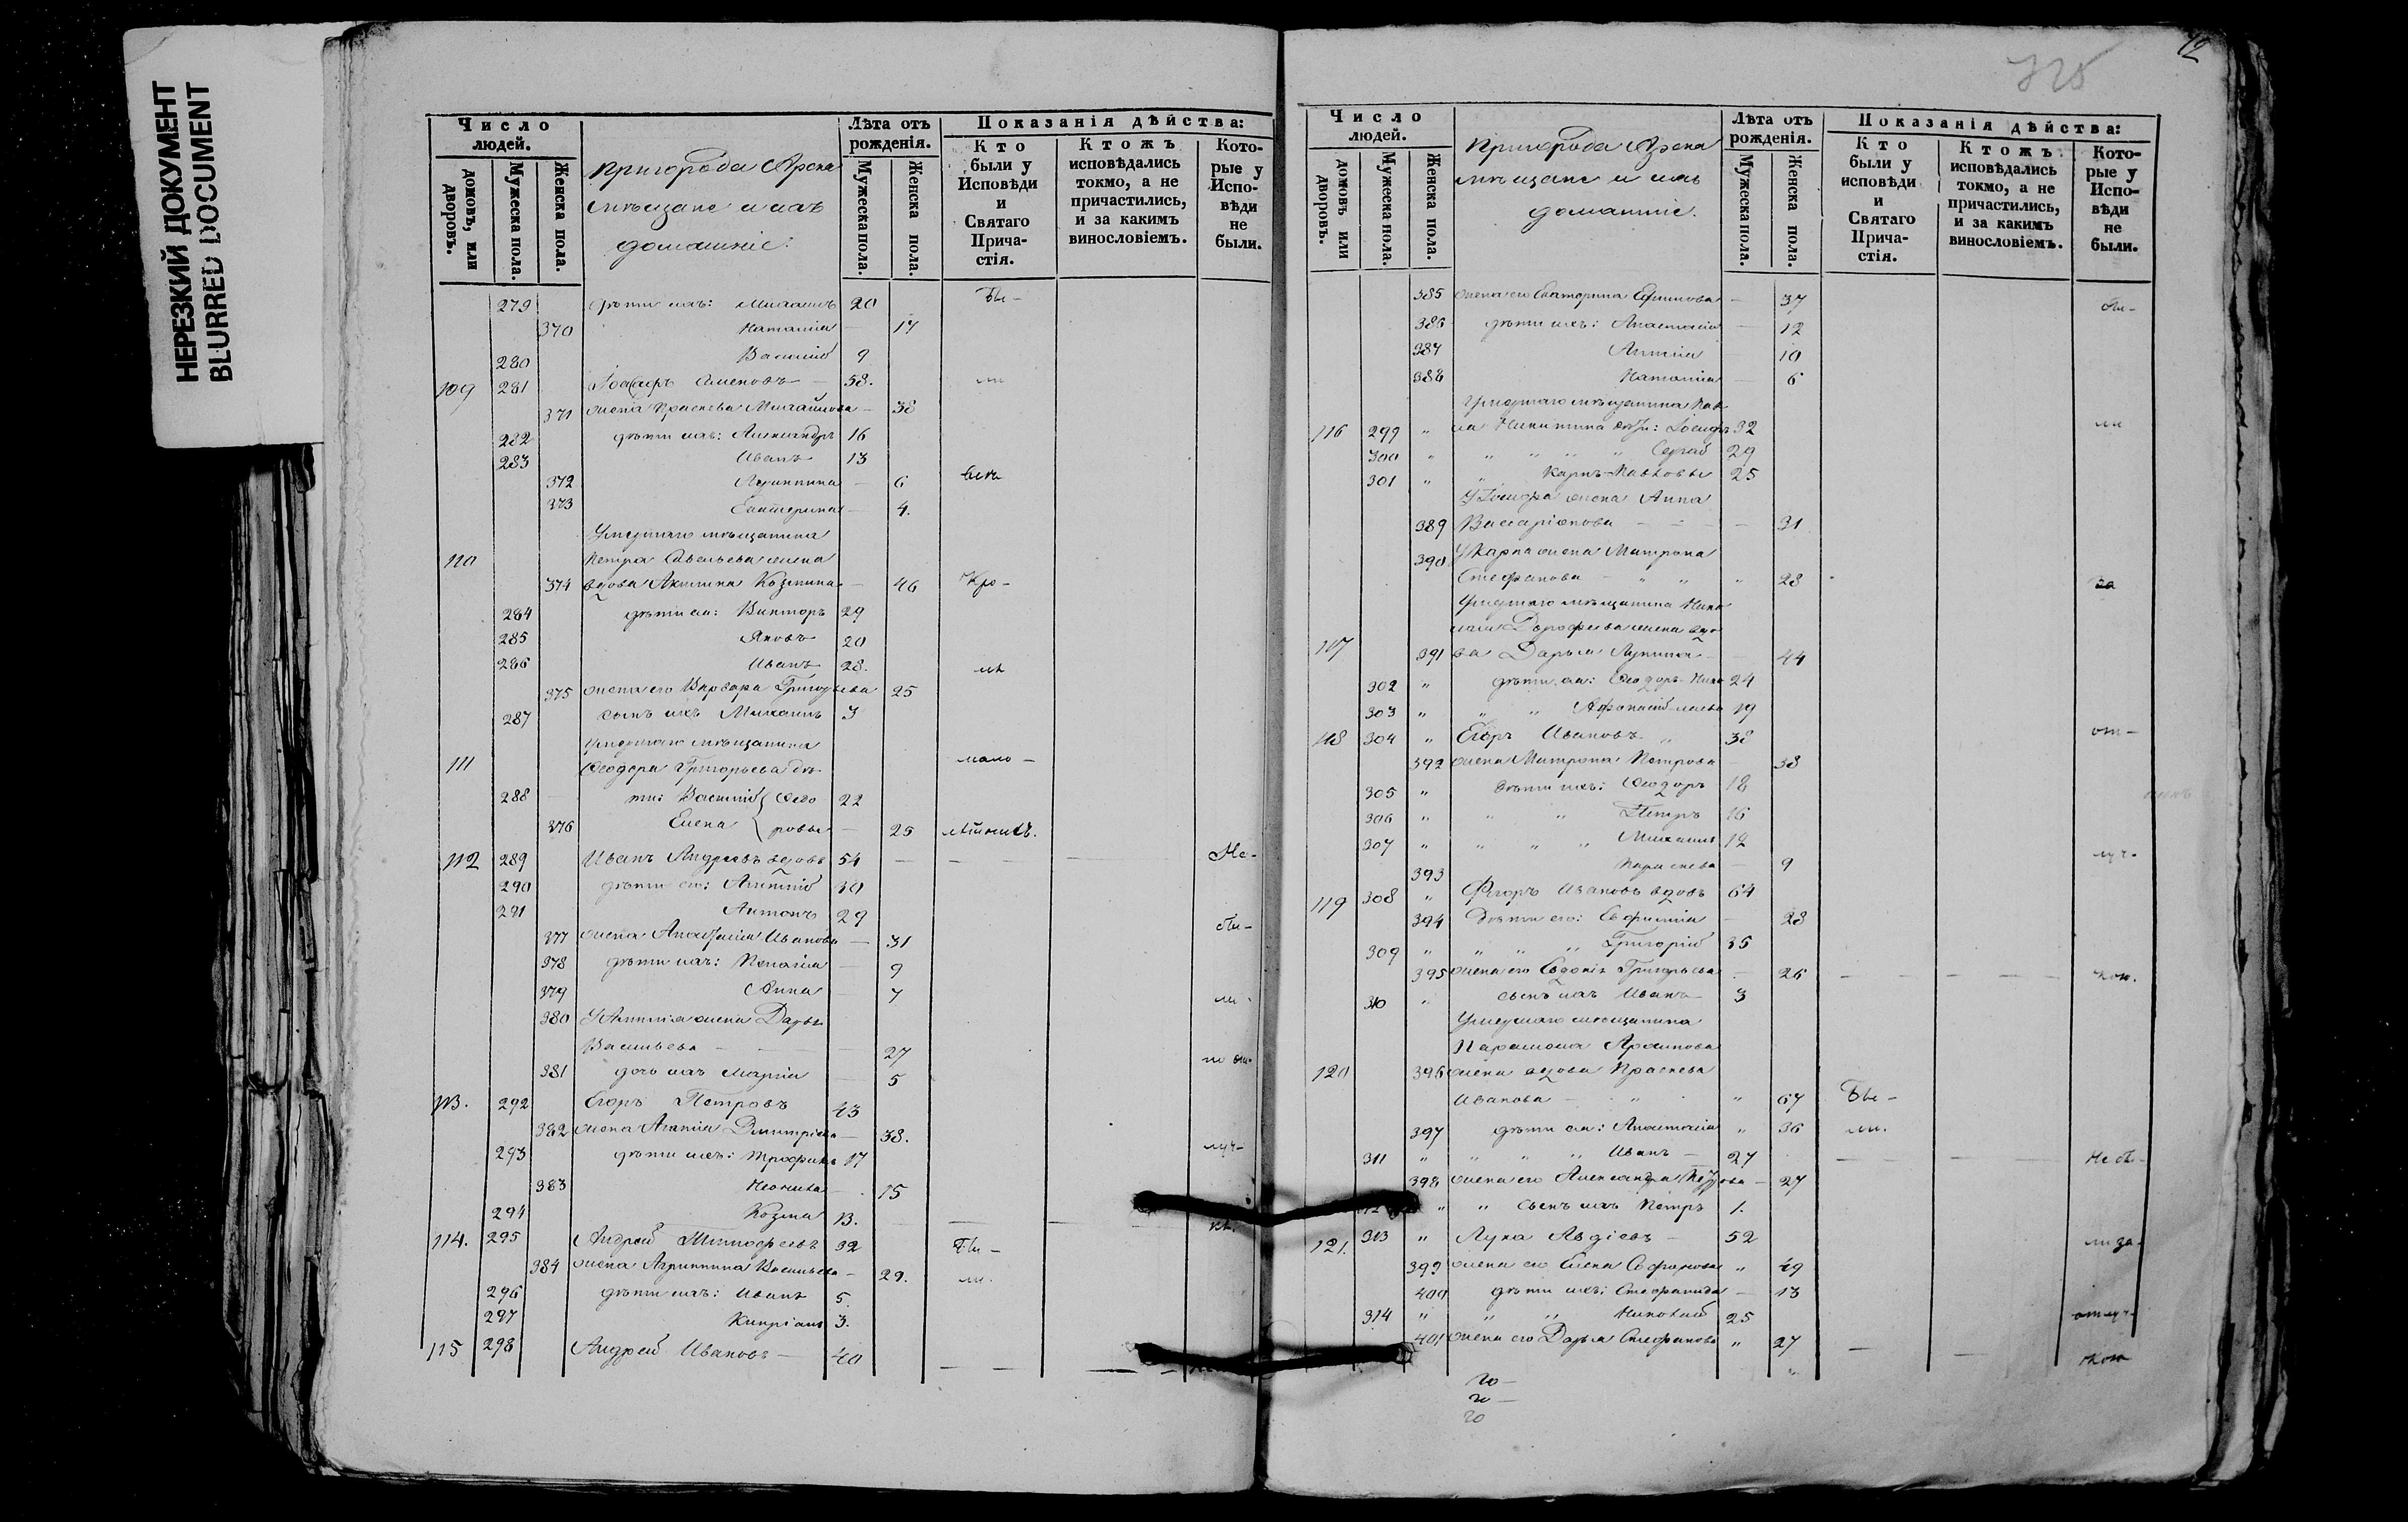 НЕРЕЗКИЙ ДОКУМЕНТ
BLURRED DOCUMENT
Число людей.
домовъ, или дворовъ.
Мужеска пола.
Женска пола.
пригорода Арска
мѣщане и ихъ
домашніе:
Лѣта отъ рожденія.
Мужеска пола.
Женска пола.
Показанія дѣйства:
Кто были у Исповѣди и Святаго Причастія.
Ктожъ исповѣдались токмо, а не причастились, и за какимъ винословіемъ.
Которые у Исповѣди не были.
279 дѣти ихъ: Михаилъ 20 Бы-
370 Наталія — 17
280 Василій 9
109 281 Семеновъ — 58. ли
371 жена Прасковья Михайлова — 38
282 дѣти ихъ: Александръ 16
283 Иванъ 13
372 Агриппина — 6
373 Екатерина — 4.
Умершаго мѣщанина
110 Петра Савельева жена
374 вдова Акилина Козмина — 46 Кро-
284 дѣти ея: Викторъ 29
285 Яковъ 20
286 Иванъ 28.
375 жена его Варвара Григорьева 25
287 сынъ ихъ Михаилъ 3
Умершаго мѣщанина
111 Ѳеодора Григорьева дѣ- мало-
288 ти: Василій Ѳедо 22
376 Елена ровы — 25 лѣтнихъ.
112 289 Иванъ Андреевъ вдовъ 54 — — — Не-
290 дѣти его: 30
291 Антонъ 29
377 жена Анастасія Иванова — 31 бы-
378 дѣти ихъ: Пелагія — 9
379 Анна — 7 ли
380 жена Дарья
Васильева — 27
381 дочь ихъ Марія — 5
113. 292 Егоръ Петровъ 43
382 жена Агапія Дмитріева — 38.
293 дѣти ихъ: Трофимъ 17 луч-
383 — 15
294 Козма 13.
114. 295 Андрей Тимофеевъ 32 Бы-
384 жена Агриппина Васильева — 29. ли.
296 дѣти ихъ: Иванъ 5.
297 Кипріанъ 3.
115 298 Андрей Ивановъ — 40
72
325
Число людей.
домовъ или дворовъ.
Мужеска пола.
Женска пола.
пригорода Арска
мѣщане и ихъ
домашніе.
Лѣта отъ рожденія.
Мужеска пола.
Женска пола.
Показанія дѣйства:
Кто были у исповѣди и Святаго Причастія.
Ктожъ исповѣдались токмо, а не причастились, и за какимъ винословіемъ.
Которые у Исповѣди не были.
385 жена его Екатерина Ефимова — 37 бы-
386 дѣти ихъ: Анастасія — 12
387 — 10
388 Наталія — 6
Умершаго мѣщанина Пав
116 299 " ла Никитина дѣти: 32 ли
300 " " " " " Сергій 29
301 " " Карпъ Павловы 25
жена Анна
389 Виссаріонова — 31
390 У Карпа жена Матрона
Стефанова — " " " 28 за
Умершаго мѣщанина Нико
лая Дорофеева жена вдо
117 391 ва Дарья Лукина — 44
302 " дѣти ея: Ѳеодоръ Нико 24
303 " " " Афанасій лаевы 19
118 304 " Егоръ Ивановъ " 38 от-
392 жена Матрона Петрова — 38
305 " дѣти ихъ: Ѳеодоръ 18
306 " " " Петръ 16
307 " " " " Михаилъ 12
393 Параскева — 9 луч-
119 308 " Ивановъ вдовъ 64
394 дѣти его: Евфимія — 28
309 " " " " Григорій 35
395 жена его Евдокія Григорьева — 26 — — кою.
310 " сынъ ихъ Иванъ 3
Умершаго мѣщанина
Парамона Архипова
120 396 жена вдова Праскева
Иванова — " " 67 Бы-
397 дѣти ея: Анастасія " 36 ли.
311 " " " " Иванъ — 27 Не бы-
398 жена его Александра Петрова — 27
" " сынъ ихъ Петръ 1.
121. 313 " Лука Авдіевъ — 52 ли за
399 жена его Елена Софронова " 49
400 дѣти ихъ: Стефанида — 13
314 " " " Николай 25 отлуч-
401 жена его Дарья Стефанова " 27 — — кою
20 —
20 —
20